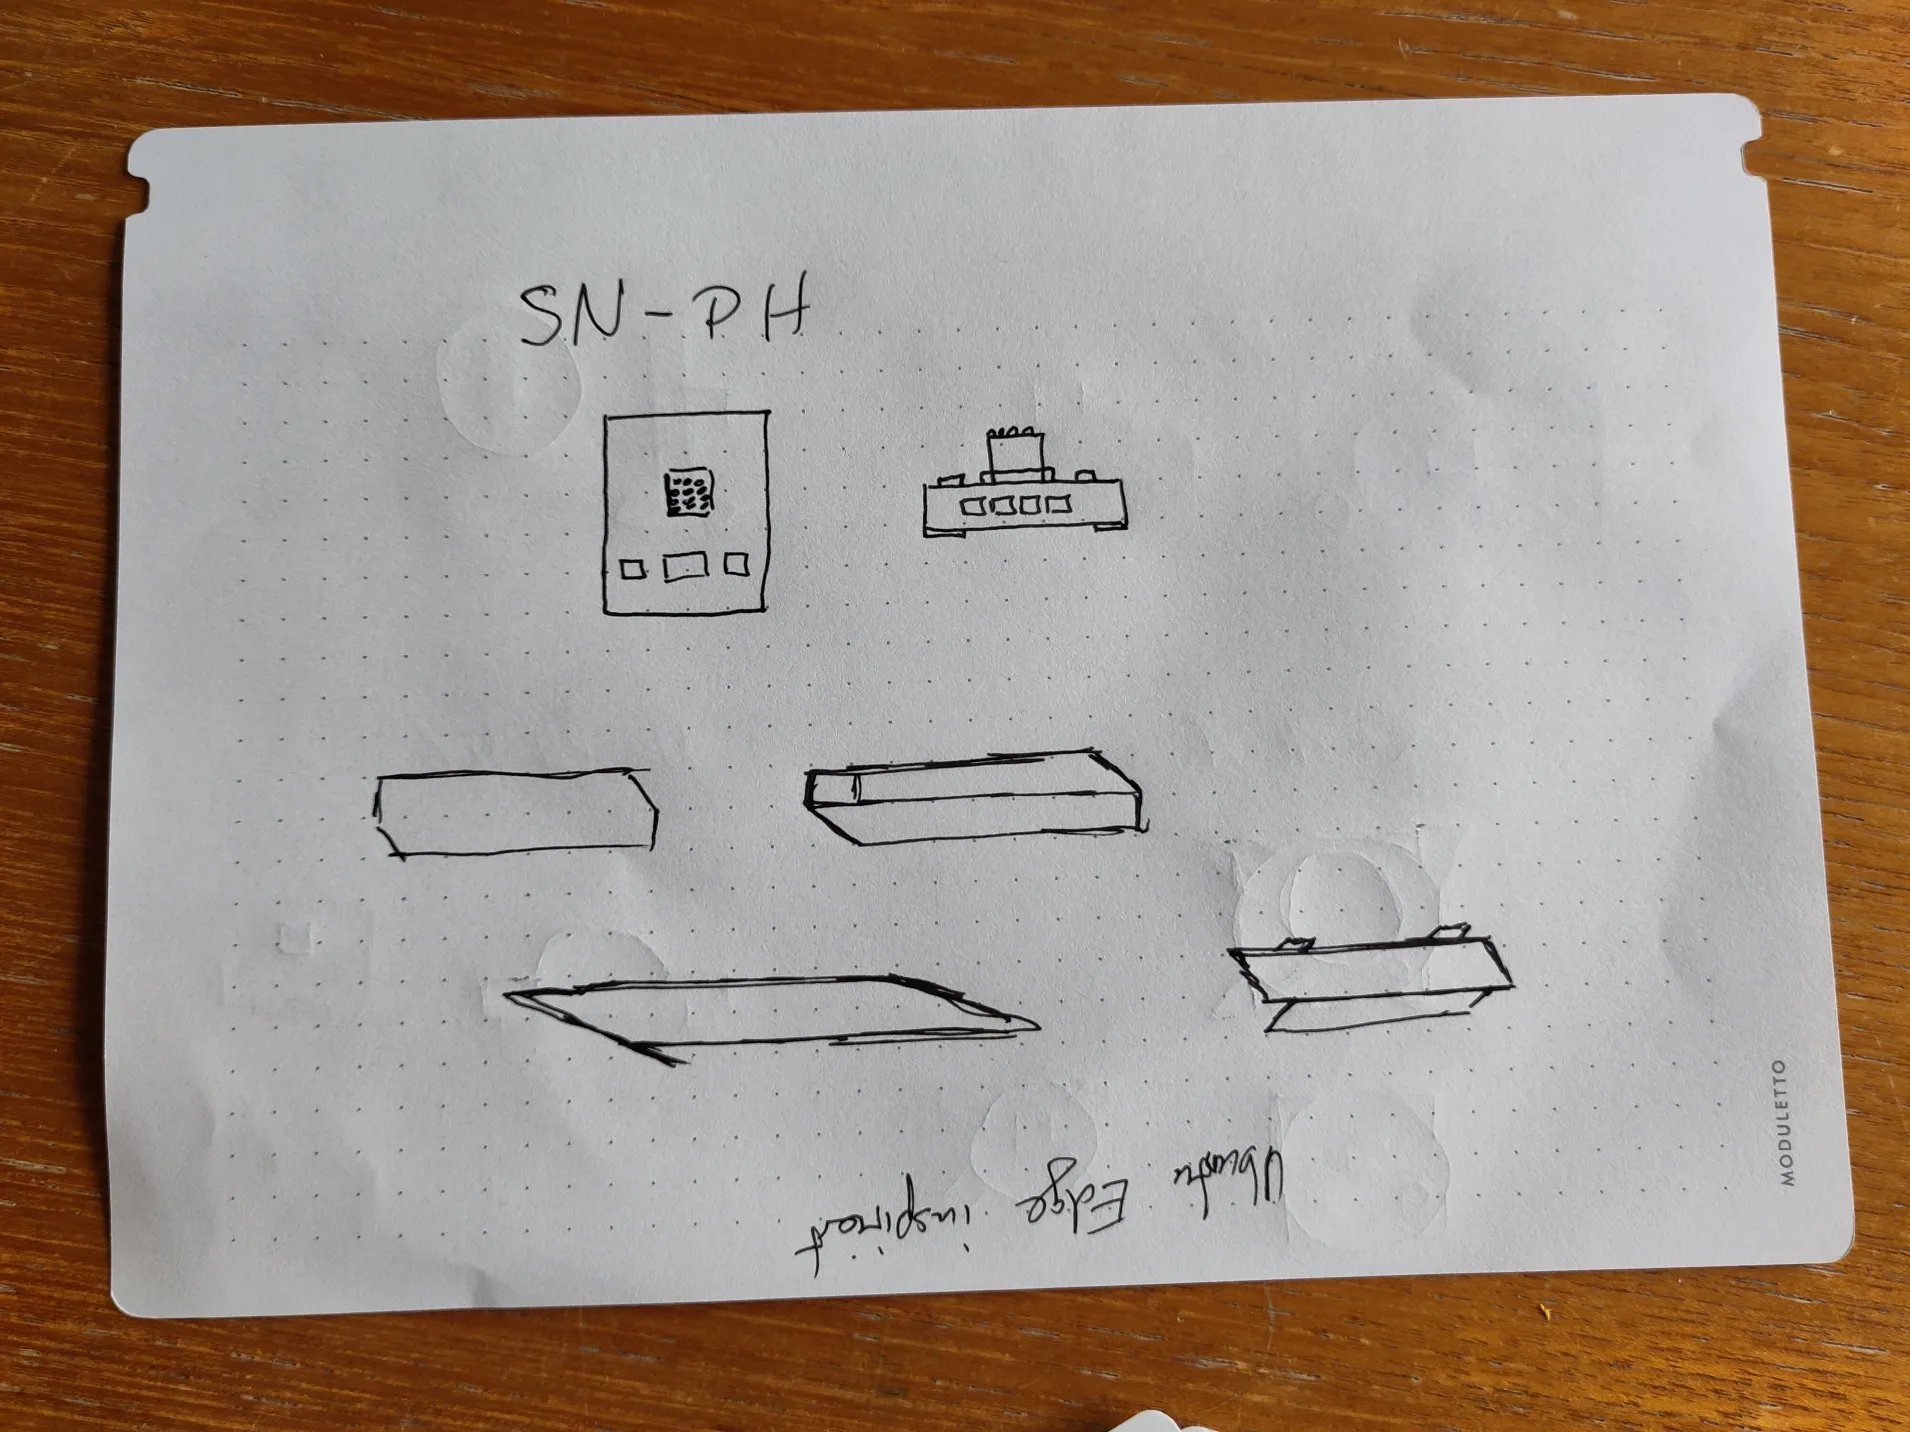 SN-PH
Ubuntu Edge inspired
MODULETTO